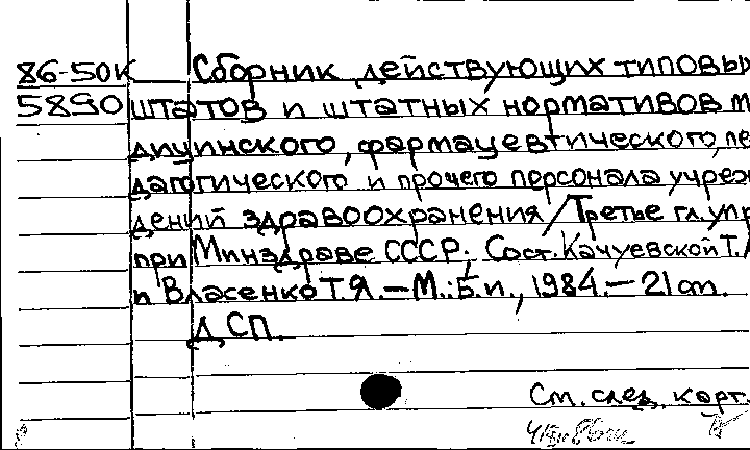 86-50к Сборник действующих типовы
5890 штатов и штатных нормативов м
дицинского, фармацевтического, пе
дагогического и прочего персонала учреж
дений здравоохранения / Третье гл. упр
при Минздраве СССР; Сост. Качуевской Т.
и Власенко Т.Я. — М.: Б.и., 1984. — 21 сm.
ДСП.
См. след. карт.